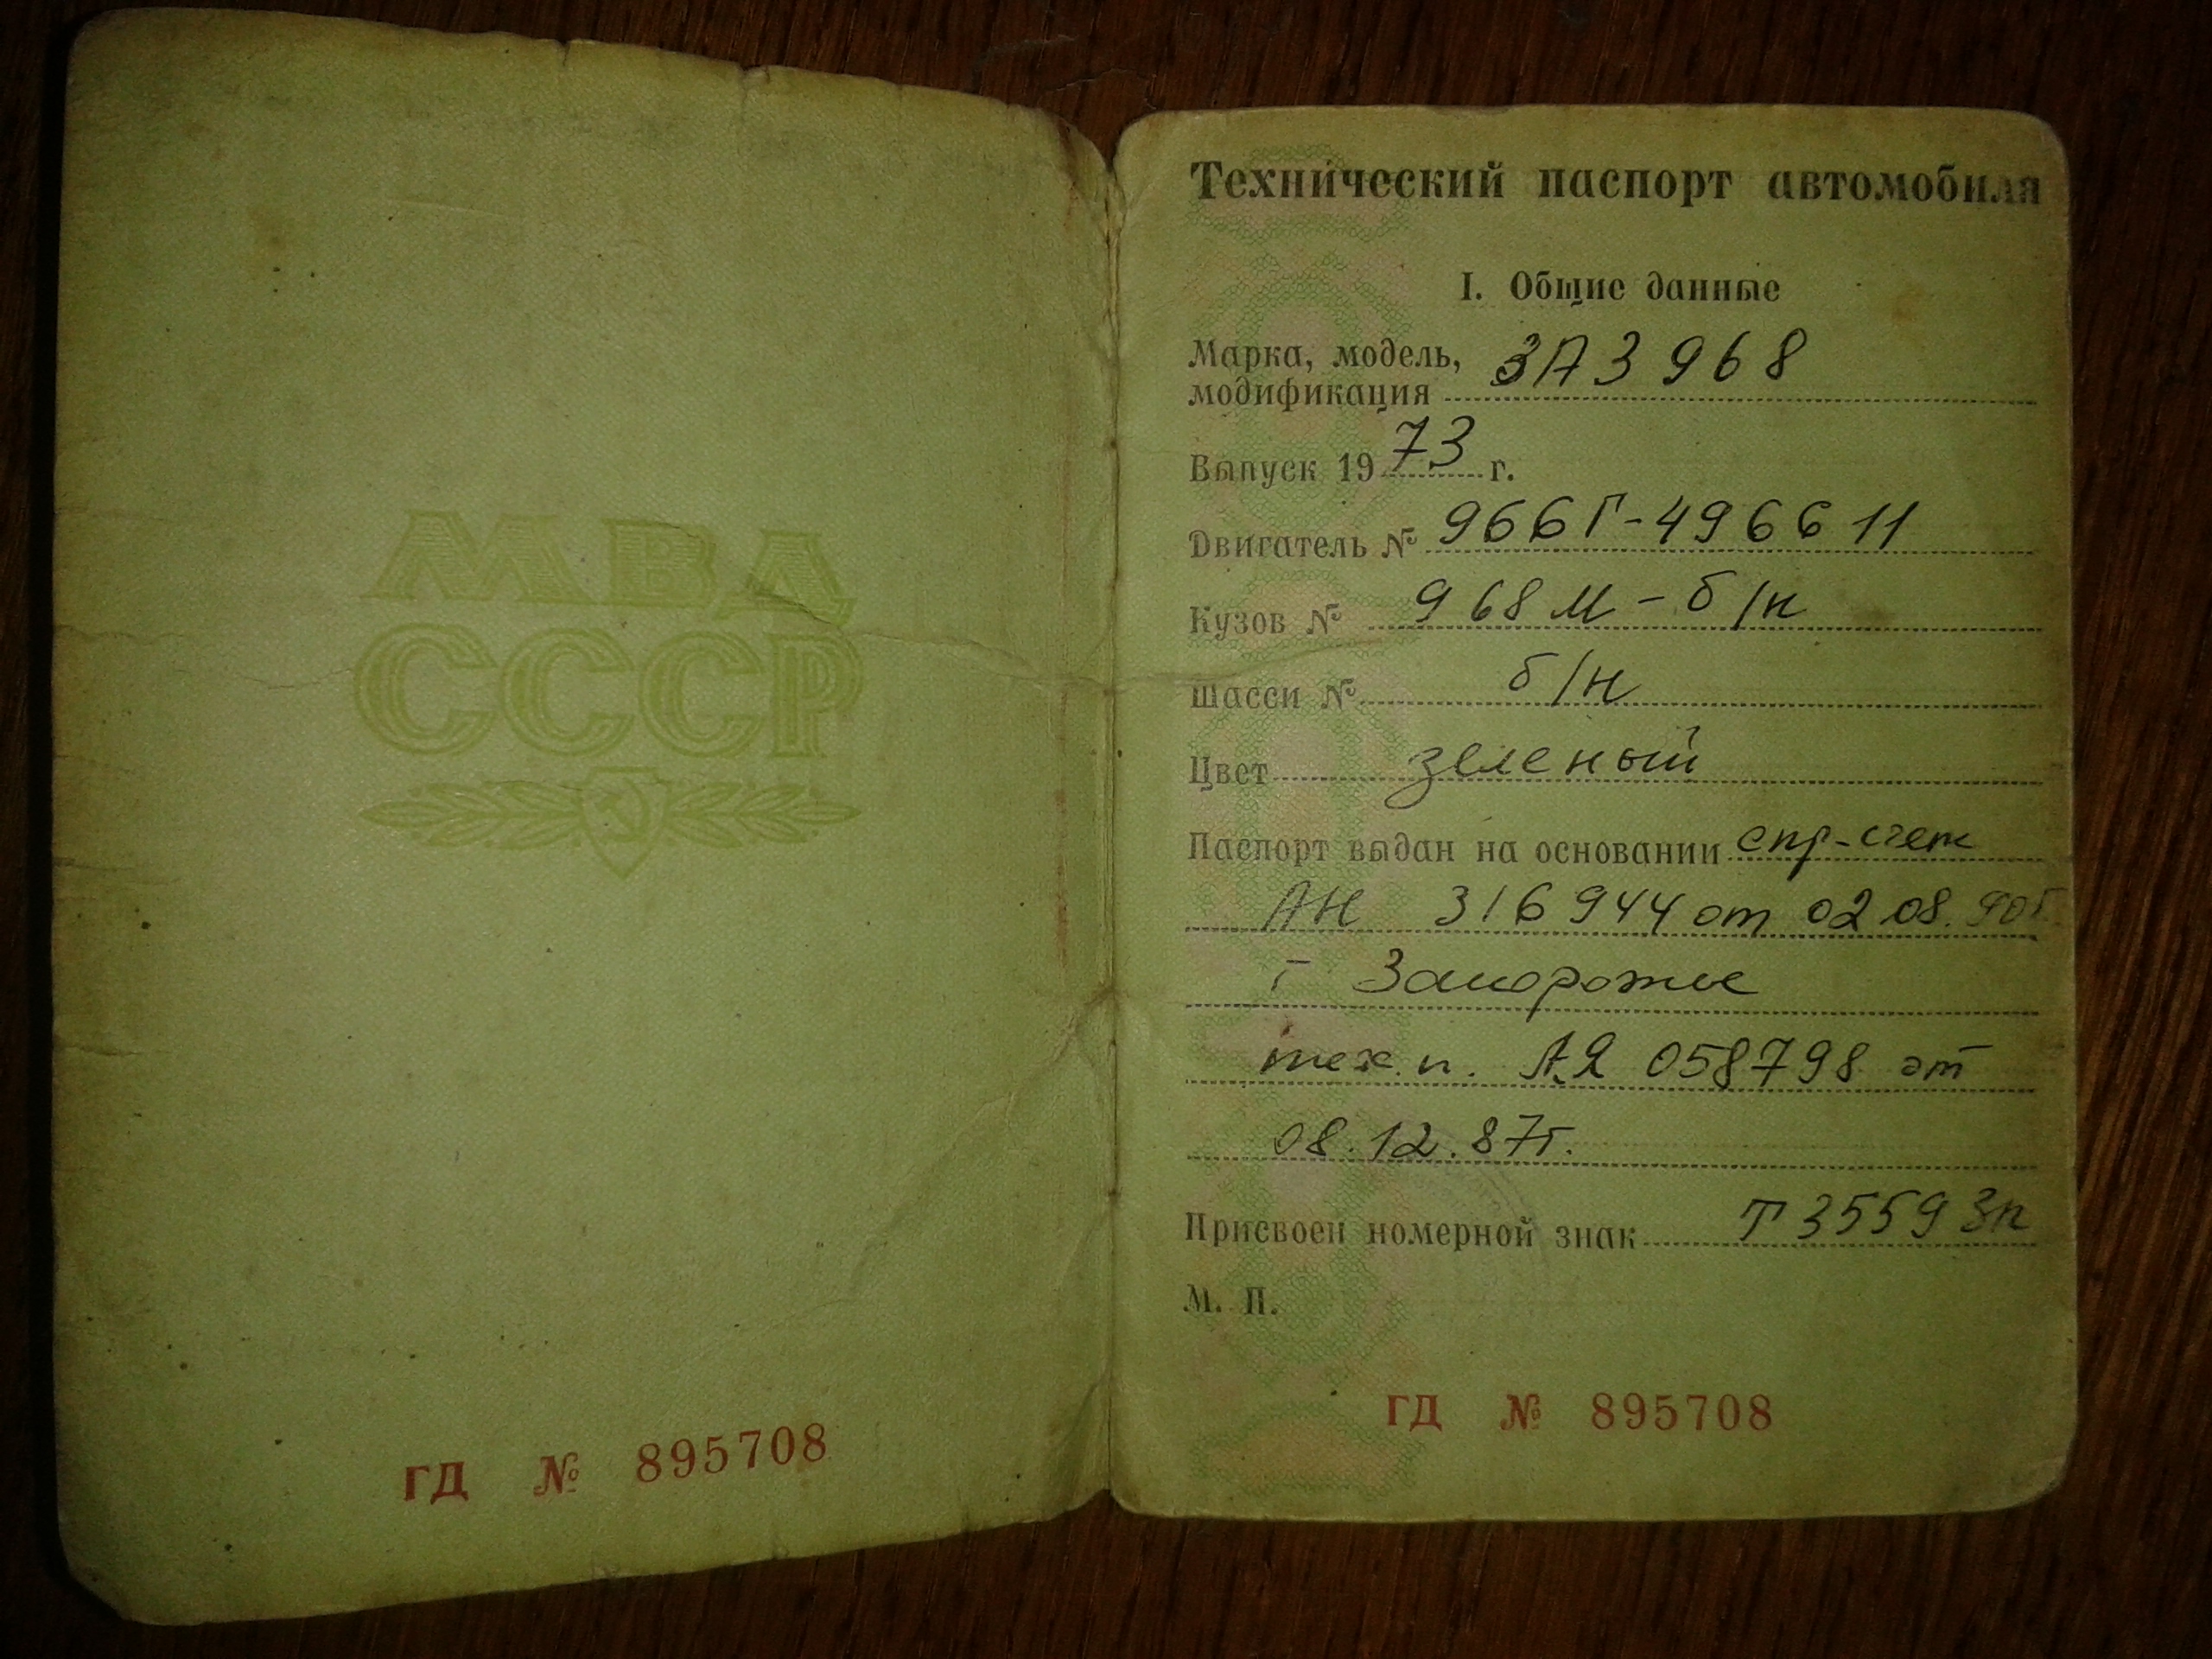 МВД
СССР
ГД № 895708
Технический паспорт автомобиля
I. Общие данные
Марка, модель,
модификация ЗАЗ 968
Выпуск 1973 г.
Двигатель № 966Г-496611
Кузов № 968М-б/н
Шасси № б/н
Цвет зеленый
Паспорт выдан на основании спр-счет
АН 316944 от 02.08.90г.
г Запорожье
тех.п. АЯ 058798 от
08.12.87г.
Присвоен номерной знак Т3559ЗП
М. П.
ГД № 895708